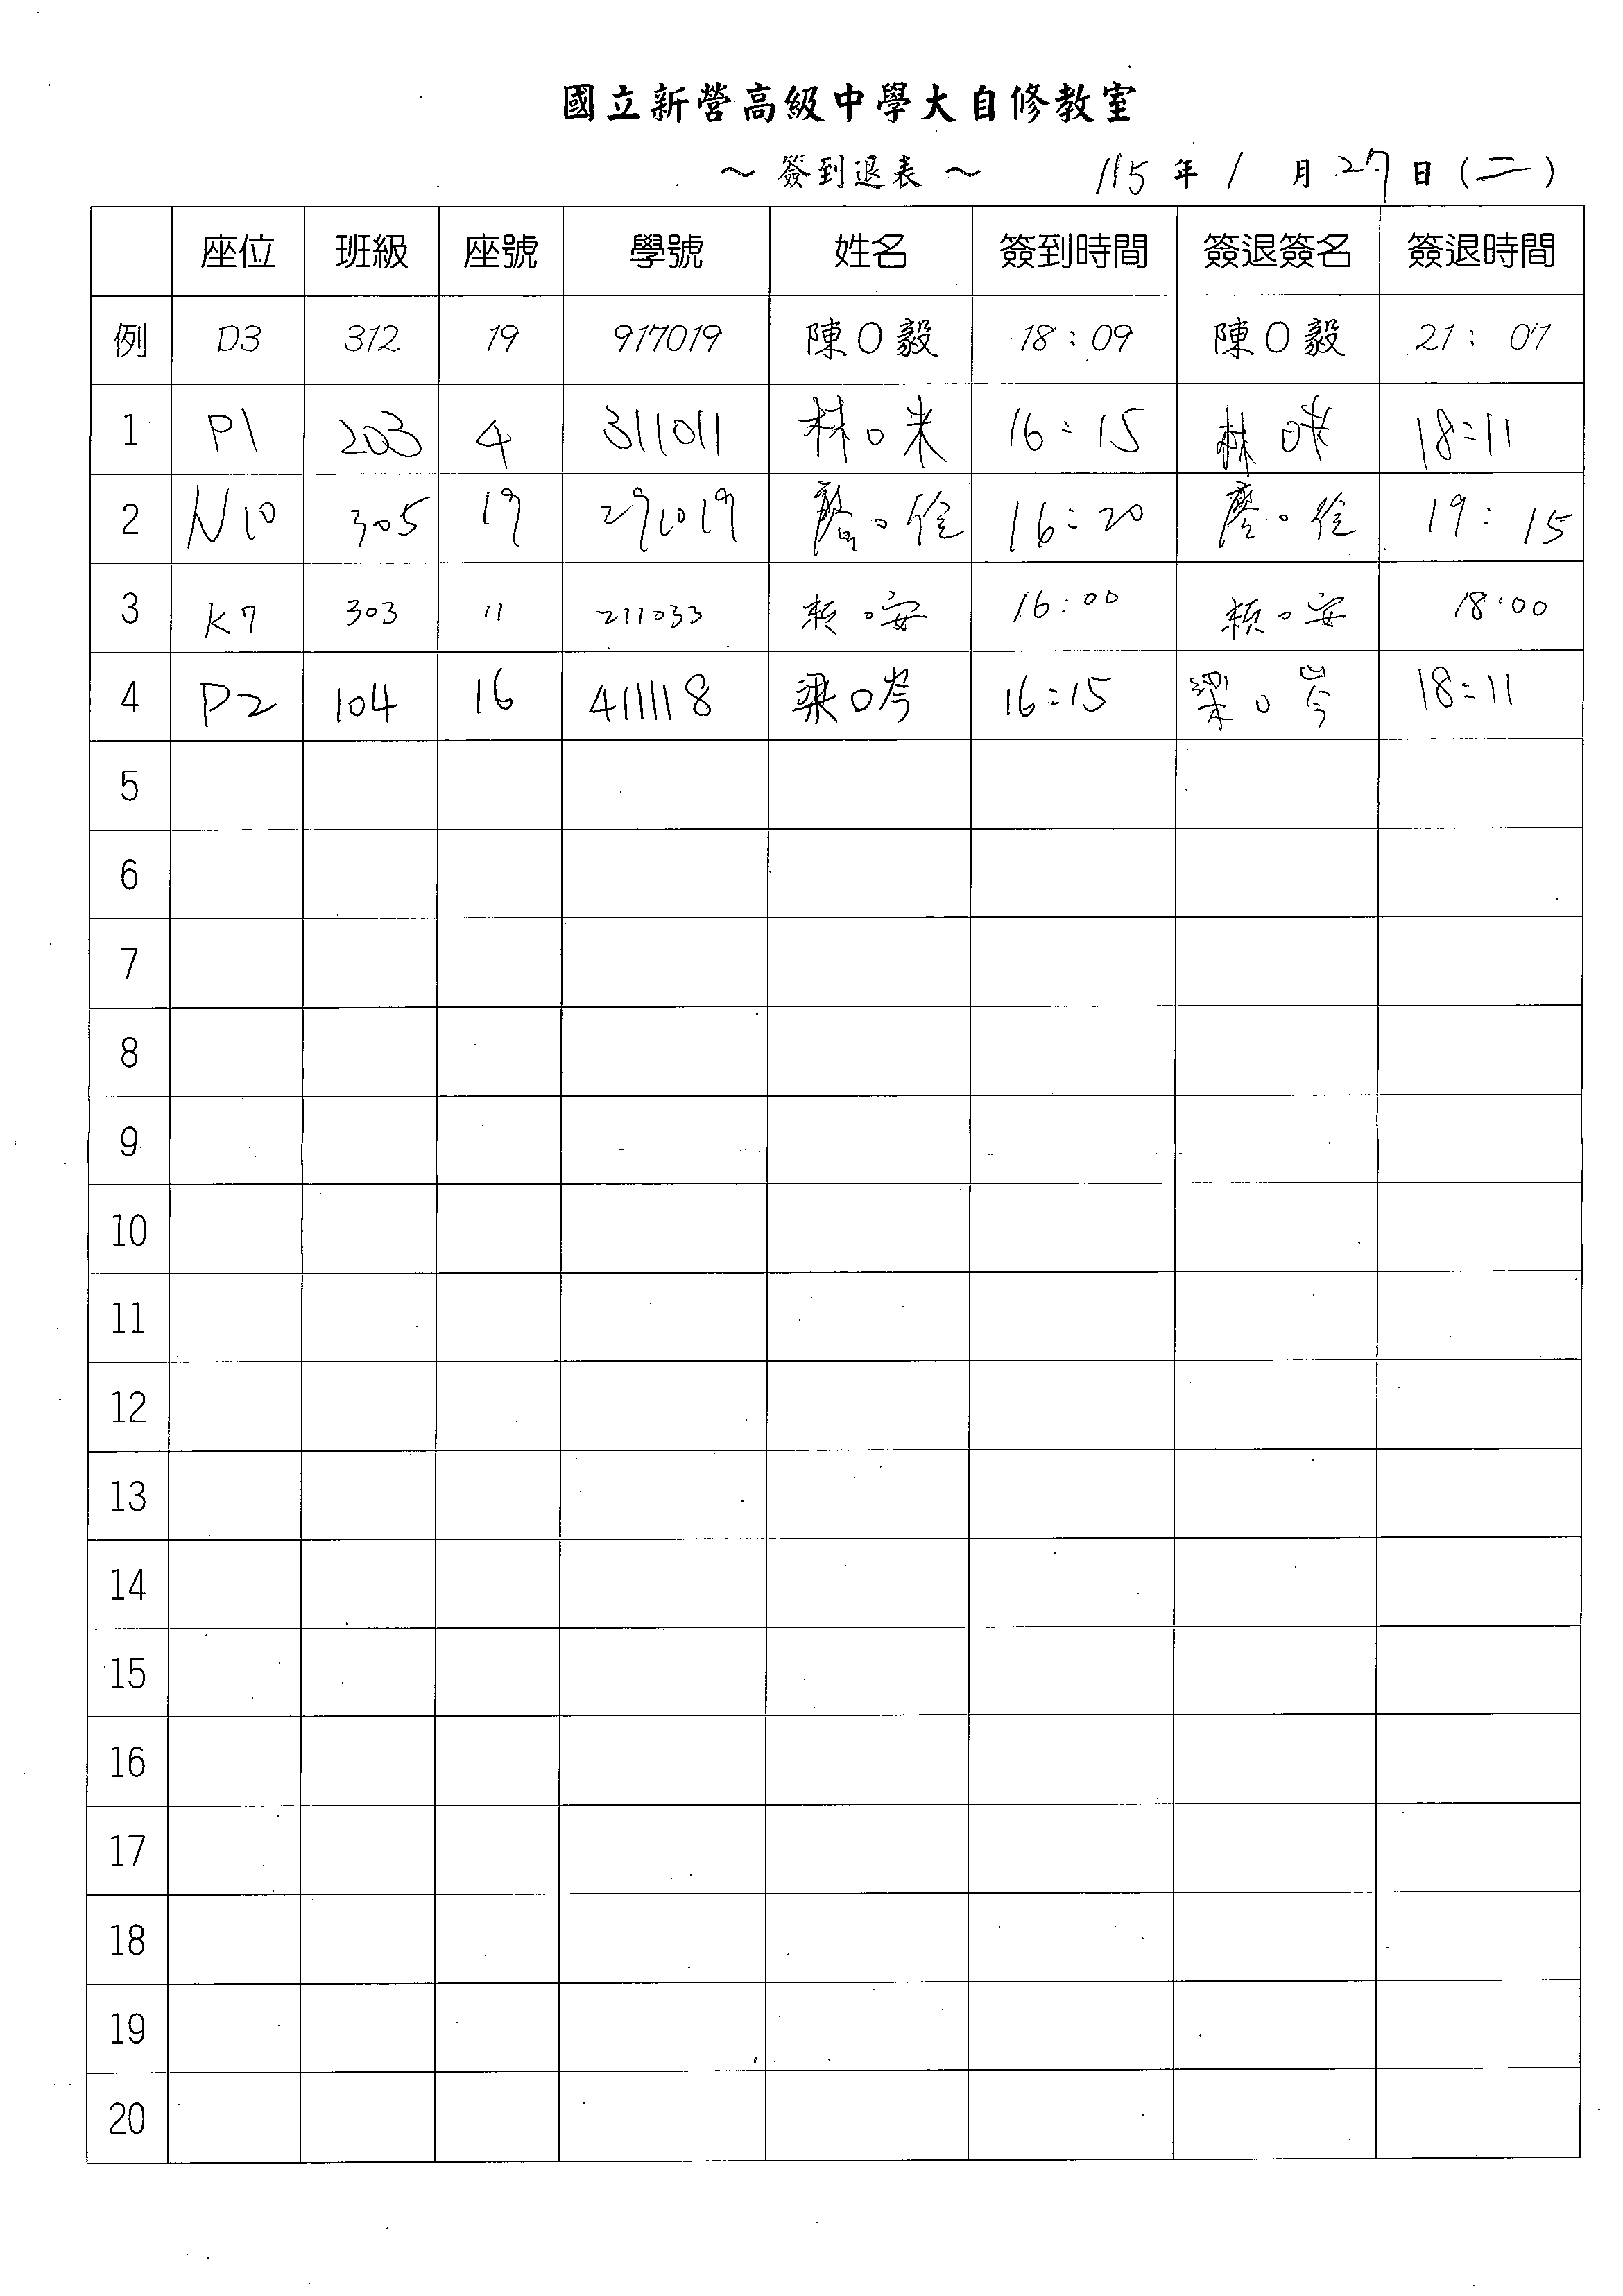 國立新營高級中學大自修教室
～ 簽到退表 ～ 115 年 1 月 27 日 (二)
座位 班級 座號 學號 姓名 簽到時間 簽退簽名 簽退時間
例 D3 312 19 917019 陳O毅 18:09 陳O毅 21:07
1 P1 203 4 311011 林O米 16:15 林O 18:11
2 N10 305 19 291019 O佺 16:20 廖O佺 19:15
3 K7 303 11 211033 賴O安 16:00 賴O安 18:00
4 P2 104 16 411118 梁O岑 16:15 梁O岑 18:11
5
6
7
8
9
10
11
12
13
14
15
16
17
18
19
20